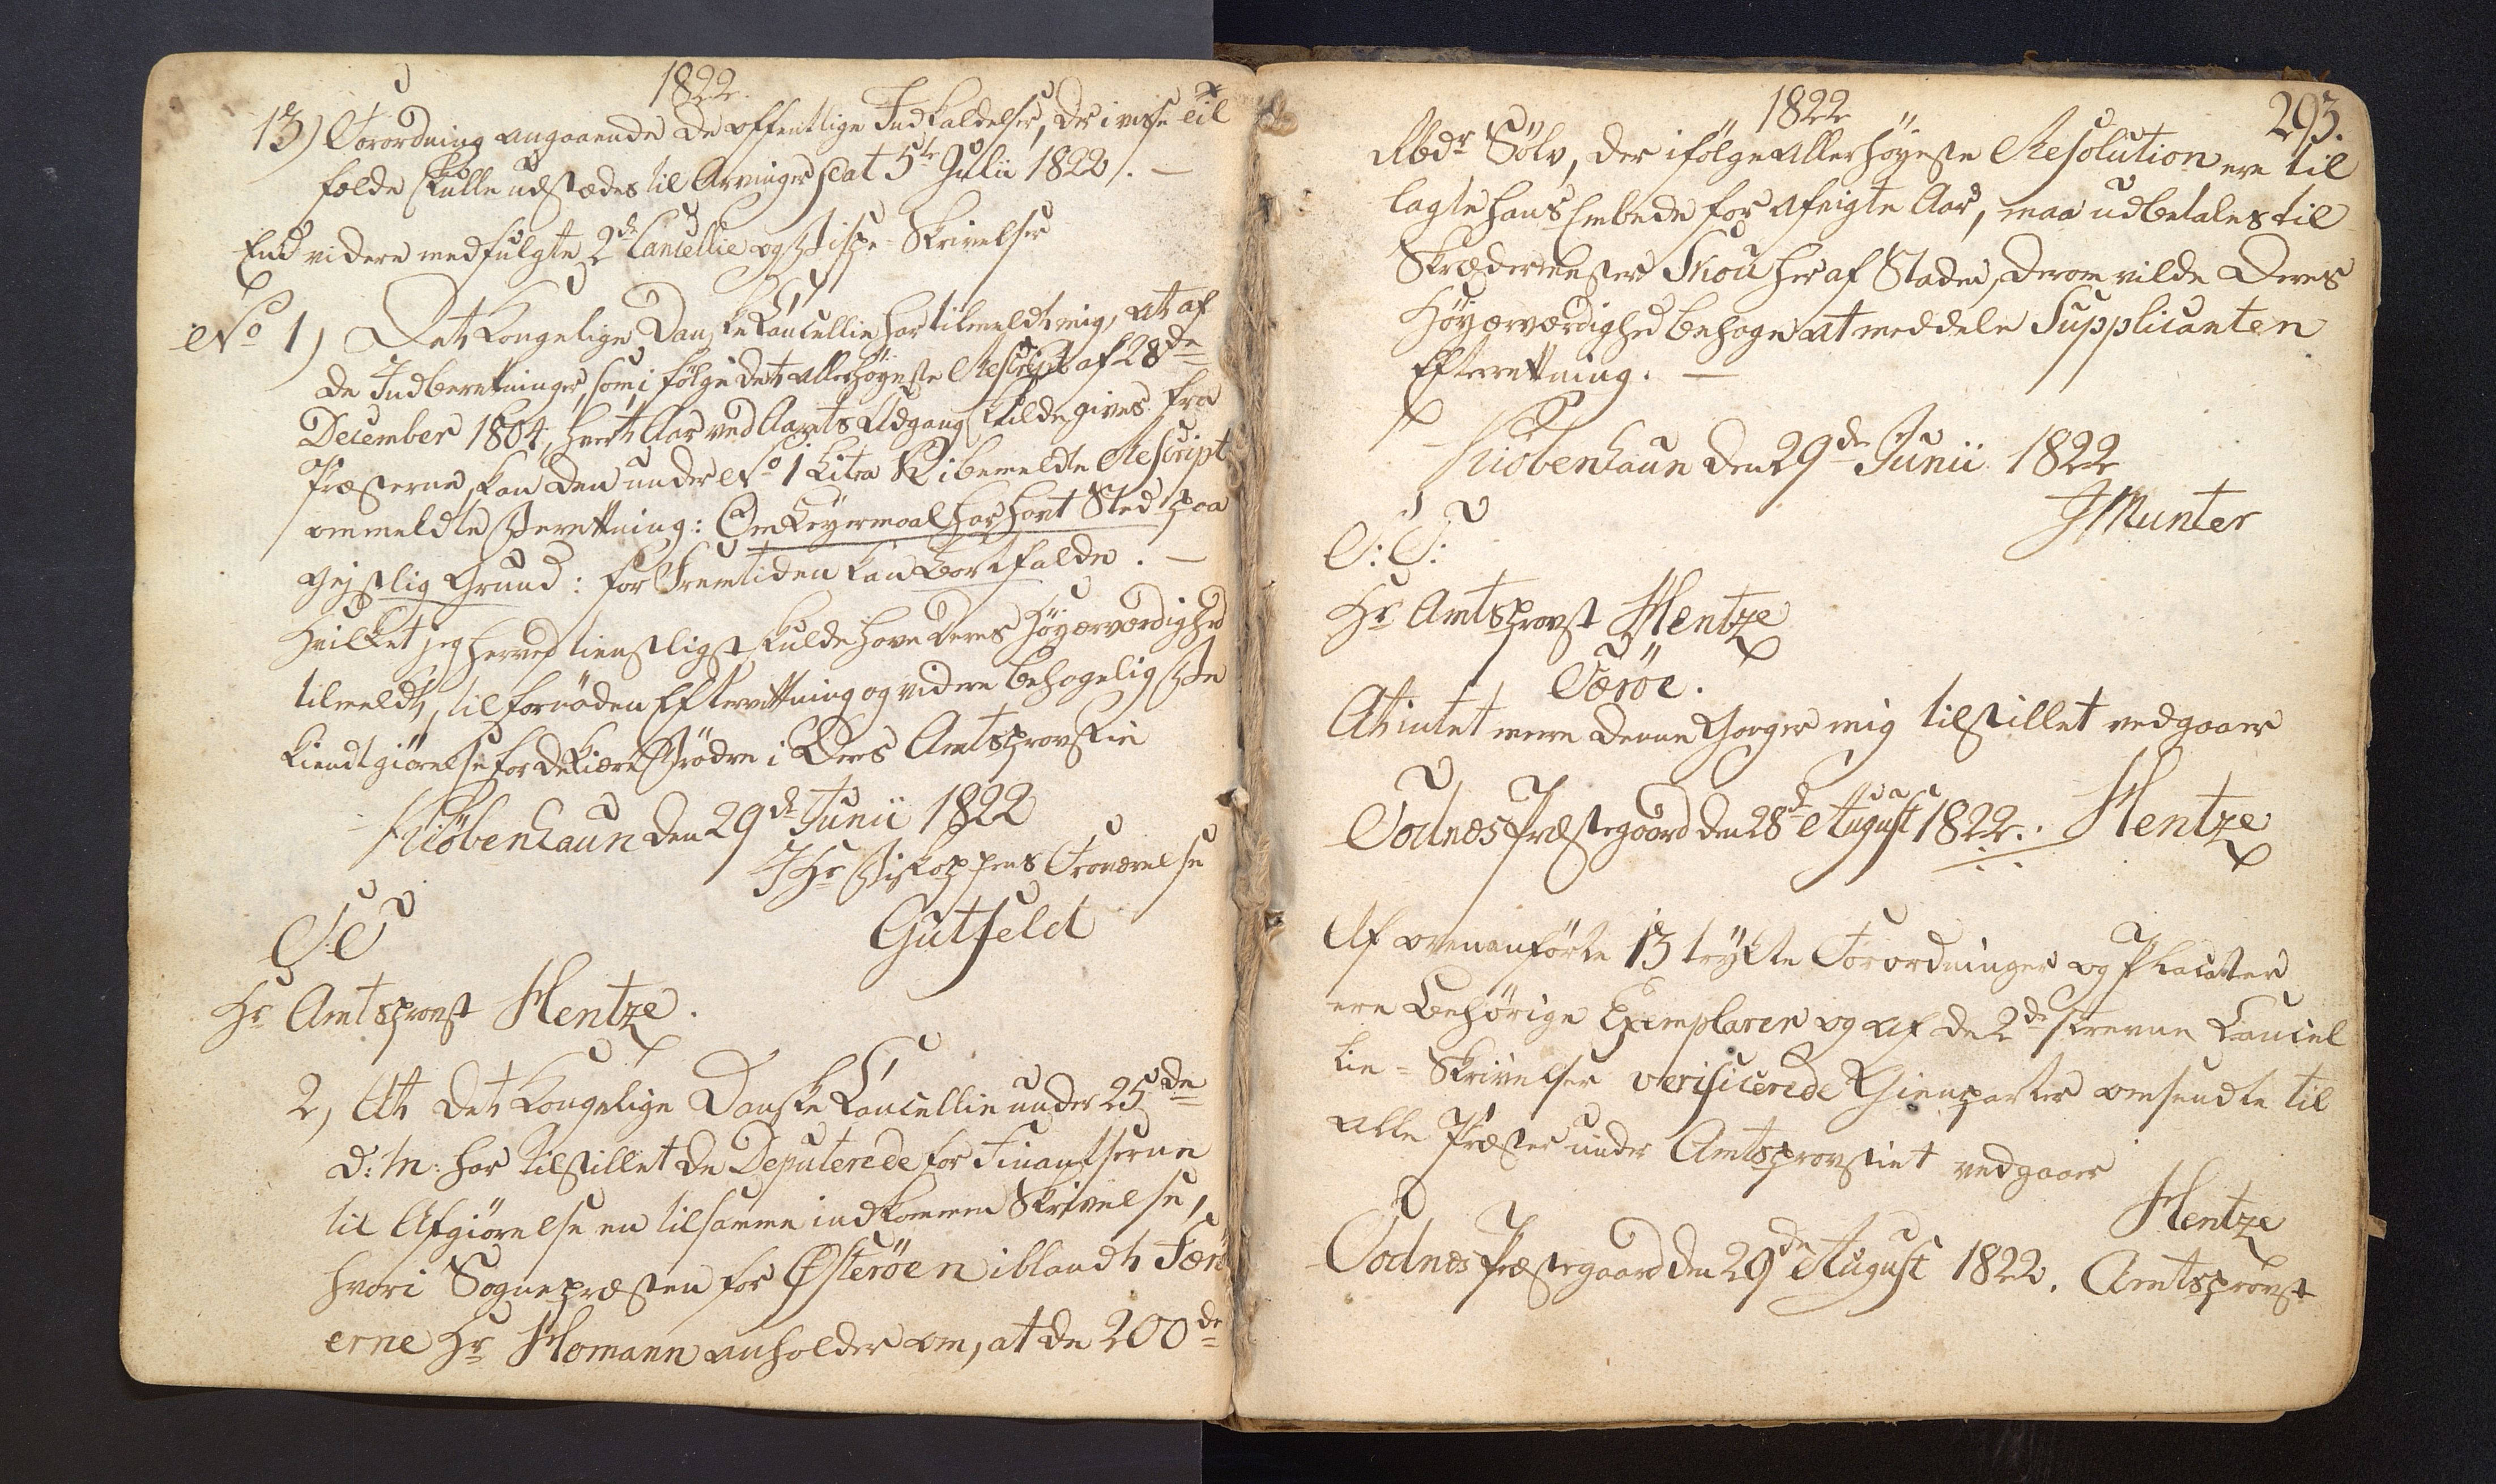 1822.
13) Forordning angaaende de offentlige Indkaldelser, der i visse Til
fælde skulle udstædes til Arvinger dat 5te Julii 1822. —
End videre medfulgte 2de Cancellie og Bispe-Skrivelser
No 1) Det Kongelige Danske Cancellie har tilmeldt mig, at af
de Indberetninger, som, i følge det allerhöyeste Rescript af 28de
December 1804, hvert Aar ved Aarets Udgang skulde gives fra
Præsterne, kan den under No 1 Litra K i bemeldte Rescript
ommeldte Beretning: Om Leyermaal har havt Sted paa
Gejstlig Grund: for Fremtiden kan bortfalde. —
Hvilket jeg herved tienstligst skulde have Deres Höyærværdighed
tilmeldt, til fornöden Efterretning og videre behagelig Be
kiendtgiörelse for de kiære Brödre i Deres Amtsprovstie
Kiöbenhaun den 29de Junii 1822
I Hr Biskoppens Fraværelse
Gutfeld
S. T.
Hr Amtsprovst Hentze.
2, At det Kongelige Danske Cancellie under 25de
d: M: har tilstillet de Deputerede for Finantserne
til Afgiörelse en tilsamme indkommen Skrivelse,
hvori Sognepræsten for Østeröen iblandt Færö
erne Hr Homann anholder om, at de 200de
1822
293.
Rbdr Sölv, der ifölge allerhöyeste Resolution ere til
lagte hans Embede for afvigte Aar, maa udbetales til
Skrædermester Skou her af Staden, derom vilde Deres
Höyærværdighed behage at meddele Supplicanten
Efterretning. —
Kiöbenhaun den 29de Junii 1822
Munter
S: T:
Hr Amtsprovst Hentze
Færöe.
At intet mere denne Gang er mig tilstillet vedgaaer
Oodnæs Præstegaard den 28de August 1822. Hentze
Af ovenanförte 13 trykte Forordninger og Placater
ere behörige Exemplarer og af de 2de skrevne Cancel
lie-Skrivelser verificerede Gienparter omsendte til
alle Præster under Amtsprovstiet vedgaaer
Hentze
Oodnæs Præstegaard den 29de August 1822. Amtsprovst